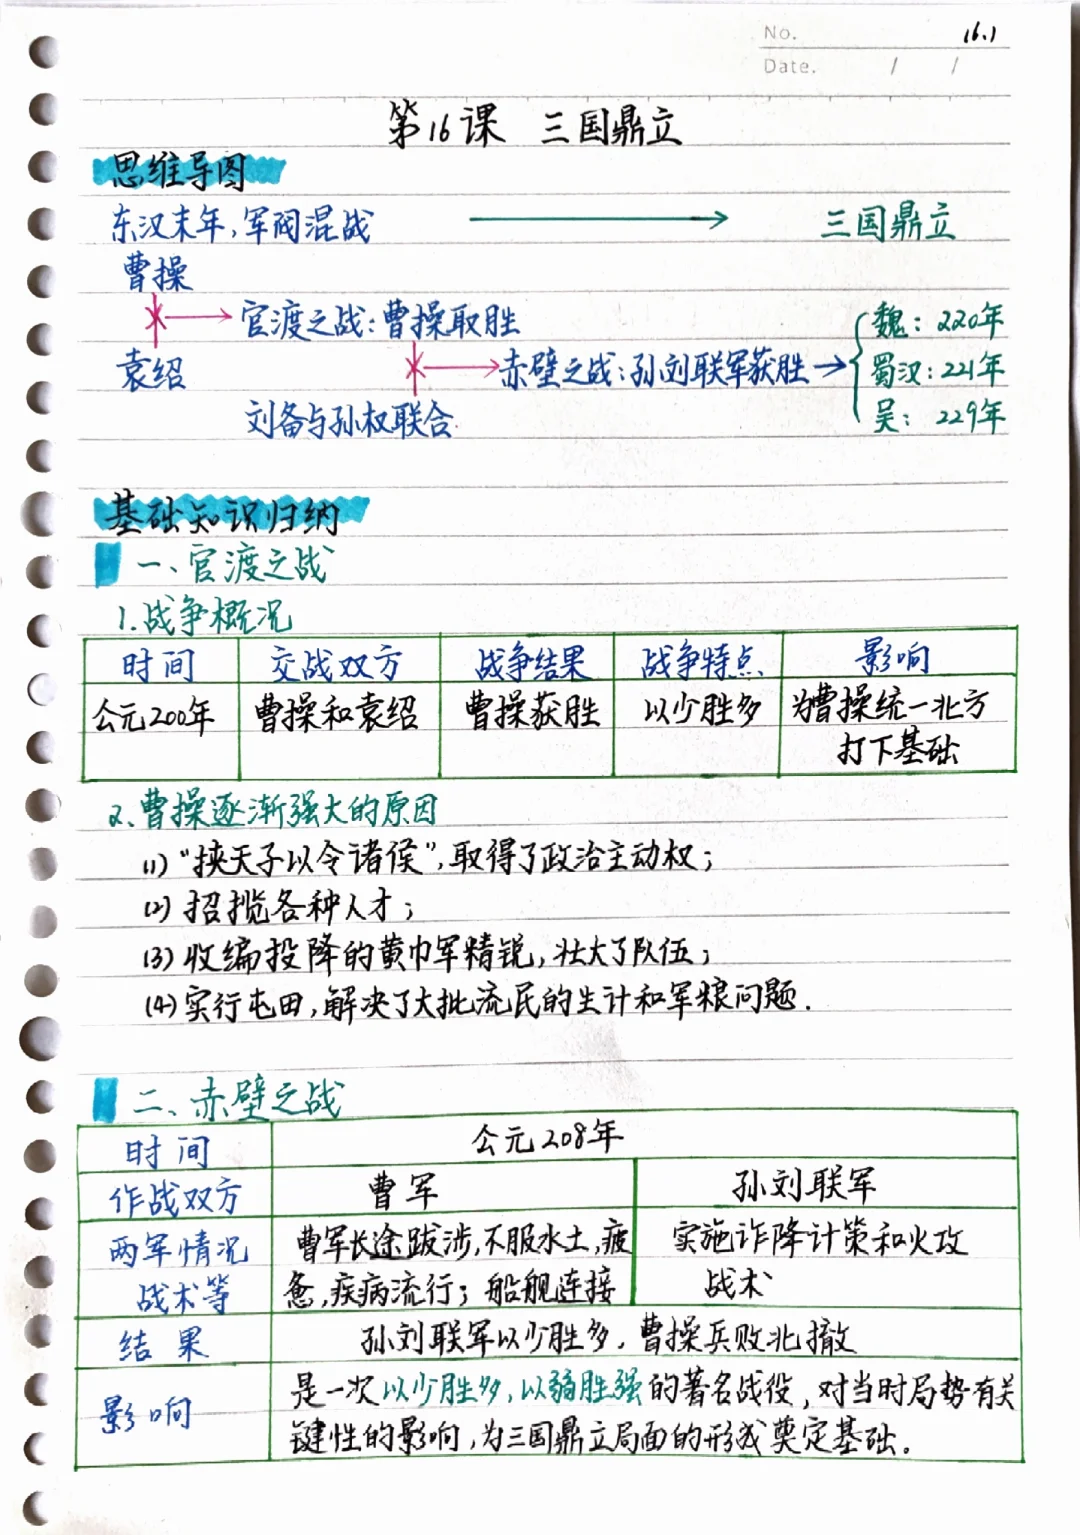 No. 16.1
Date. / /
第16课 三国鼎立
思维导图
东汉末年,军阀混战 三国鼎立
曹操
官渡之战:曹操取胜
袁绍
赤壁之战:孙刘联军获胜
刘备与孙权联合
魏:220年
蜀汉:221年
吴:229年
基础知识归纳
一、官渡之战
1.战争概况
时间 交战双方 战争结果 战争特点 影响
公元200年 曹操和袁绍 曹操获胜 以少胜多 为曹操统一北方
打下基础
2.曹操逐渐强大的原因
(1)“挟天子以令诸侯”,取得了政治主动权;
(2)招揽各种人才;
(3)收编投降的黄巾军精锐,壮大了队伍;
(4)实行屯田,解决了大批流民的生计和军粮问题.
二、赤壁之战
时间 公元208年
作战双方 曹军 孙刘联军
两军情况 曹军长途跋涉,不服水土,疲 实施诈降计策和火攻
战术等 惫,疾病流行;船舰连接 战术
结果 孙刘联军以少胜多,曹操兵败北撤
影响 是一次以少胜多,以弱胜强的著名战役,对当时局势有关
键性的影响,为三国鼎立局面的形成奠定基础.